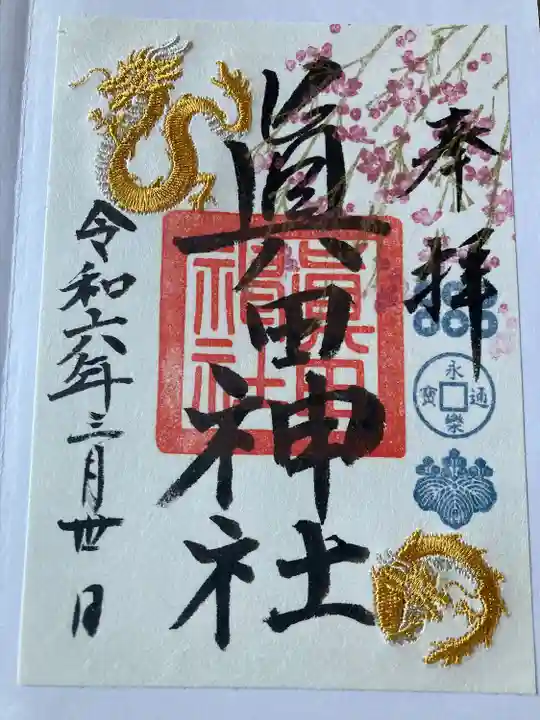 奉拝
永樂通寳
眞田神社
眞田神社
令和六年三月丗日